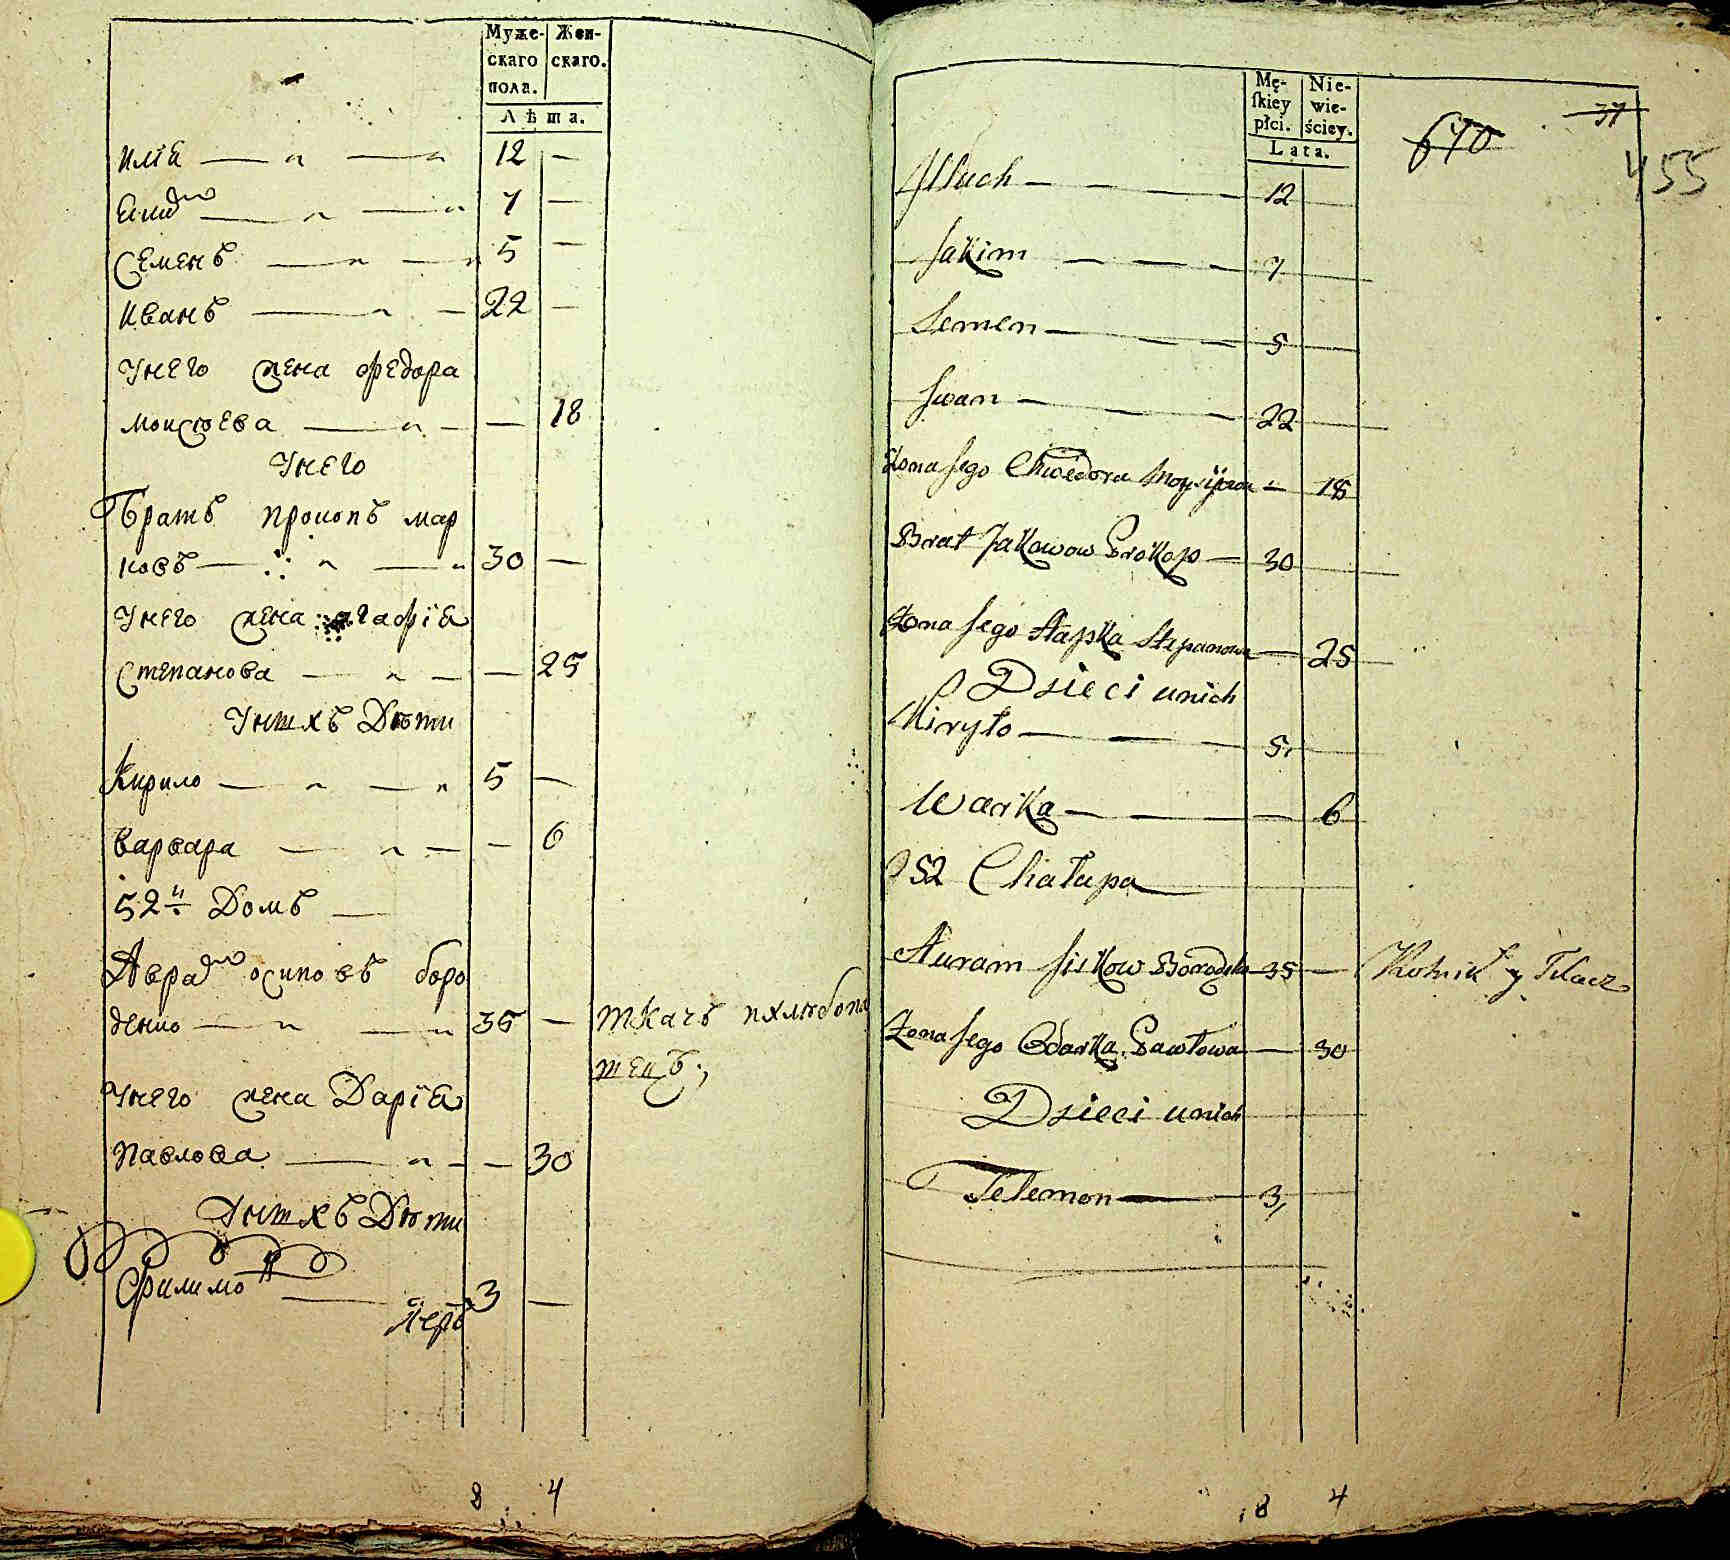 Муже-
скаго
пола.
Жен-
скаго.
Лѣта.
Илія — " — " 12 —
Аки — " — " 7 —
Семенъ — " — " 5 —
Иванъ — " — 22 —
Унего жена Федора
Моисѣева — " — — 18
Унего
Братъ Прокопъ Мар
ковъ — " — " 30 —
Унего жена Агафіа
Степанова — " — — 25
Унихъ Дѣти
Кирило — " — " 5 —
Варвара — " — — 6
52й Домъ —
Аврам Осиповъ боро
денко — " — " 35 — ткачъ и хлѣбопа
шецъ.
Унего жена Даріа
Павлова — " — — 30
Унихъ Дѣти
Филимон — 3 —
Іерѣ
8 4
Mę-
skiey
płci.
Nie-
wie-
ściey.
Lata.
37
670
455
Illuch — — — 12
Jakim — — — 7
Semen — — — 5
Iwan — — — 22
Żona Jego Chwedora — 18
Brat Jakowow Prokop — 30
Żona Jego Hapka Stepanowa — 25
Dzieci unich
Kiryło — — — 5
Warka — — — 6
52 Chałupa
Auram Siskow 35 — Rolnik y Tkacz
Żona Jego Odarka Pawłowa — 30
Dzieci unich
Felemon — 3
8 4